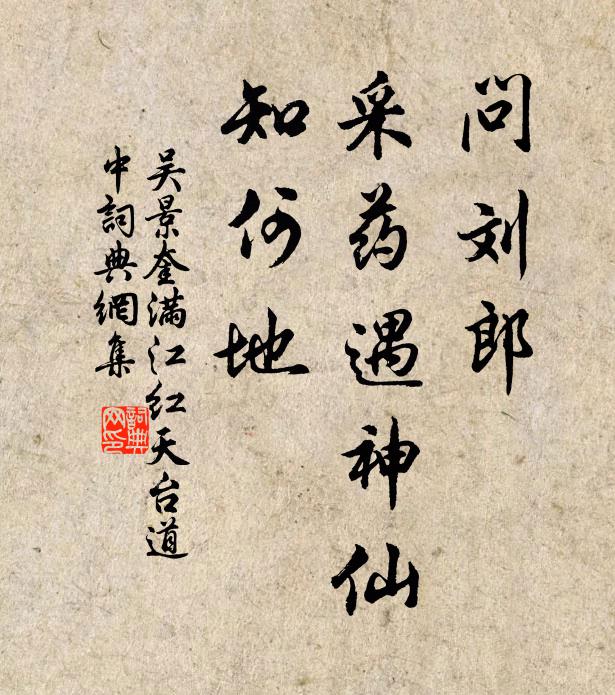 问刘郎
采药遇神仙
知何地
吴景奎满江红天台道
中詞典網集
詞典网印